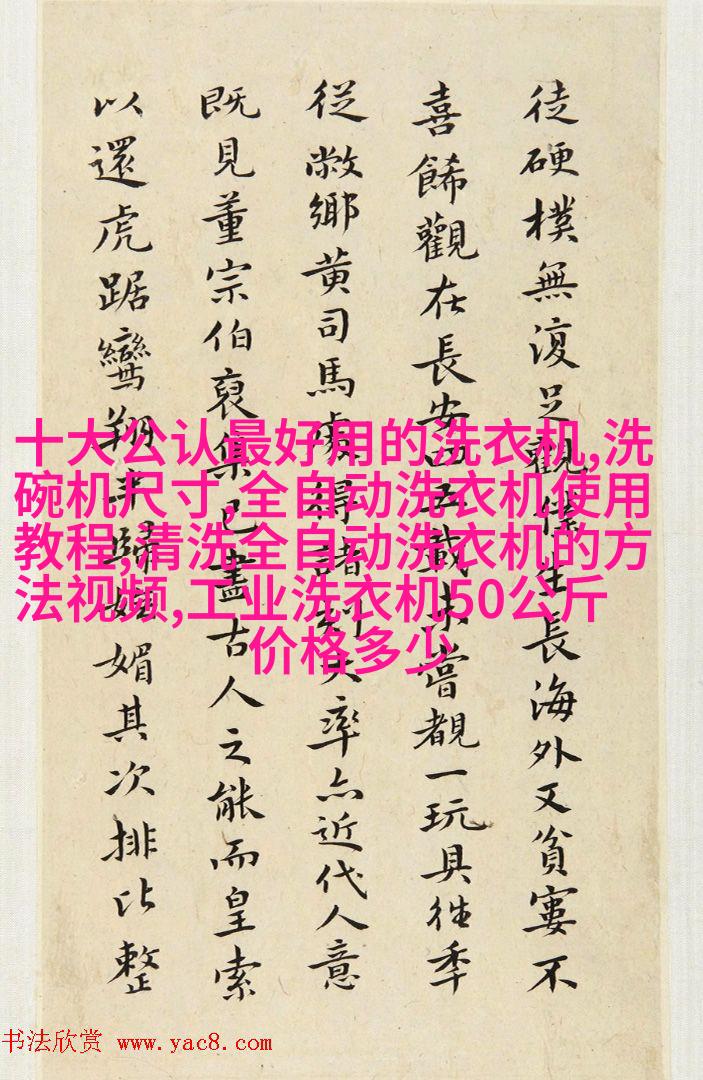 徒硬樸無復足觀僕生長海外又貧窶不
喜餙觀在長安四五載未嘗覩一玩具往秊
從敝鄉黄司馬處得諸刻大率亦近代人意
既見董宗伯裒集已盡古人之能而皇索
以還虎踞鸞翔媚其次排比整
十大公认最好用的洗衣机,洗
碗机尺寸,全自动洗衣机使用
教程,清洗全自动洗衣机的方
法视频,工业洗衣机50公斤
价格多少
书法欣赏 www.yac8.com